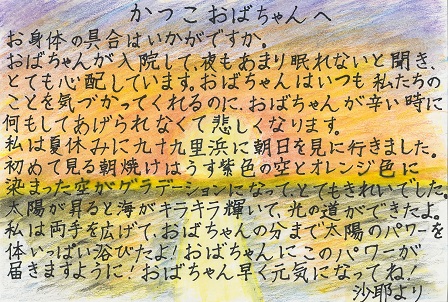 かつこおばちゃんへ
お身体の具合はいかがですか。
おばちゃんが入院して、夜もあまり眠れないと聞き、
とても心配しています。おばちゃんはいつも私たちの
ことを気づかってくれるのに、おばちゃんが辛い時に
何もしてあげられなくて悲しくなります。
私は夏休みに九十九里浜に朝日を見に行きました。
初めて見る朝焼けはうす紫色の空とオレンジ色に
染まった空がグラデーションになって、とてもきれいでした。
太陽が昇ると海がキラキラ輝いて、光の道ができたよ。
私は両手を広げて、おばちゃんの分まで太陽のパワーを
体いっぱい浴びたよ!おばちゃんにこのパワーが
届きますように!おばちゃん早く元気になってね!
沙耶より